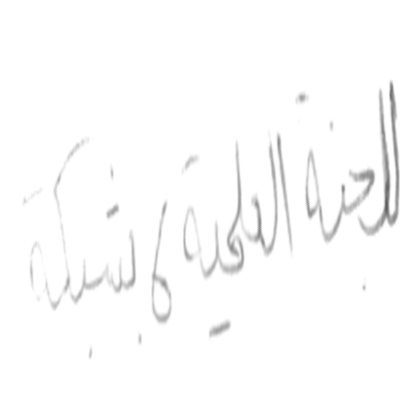 للجنة العلمية بشبكة